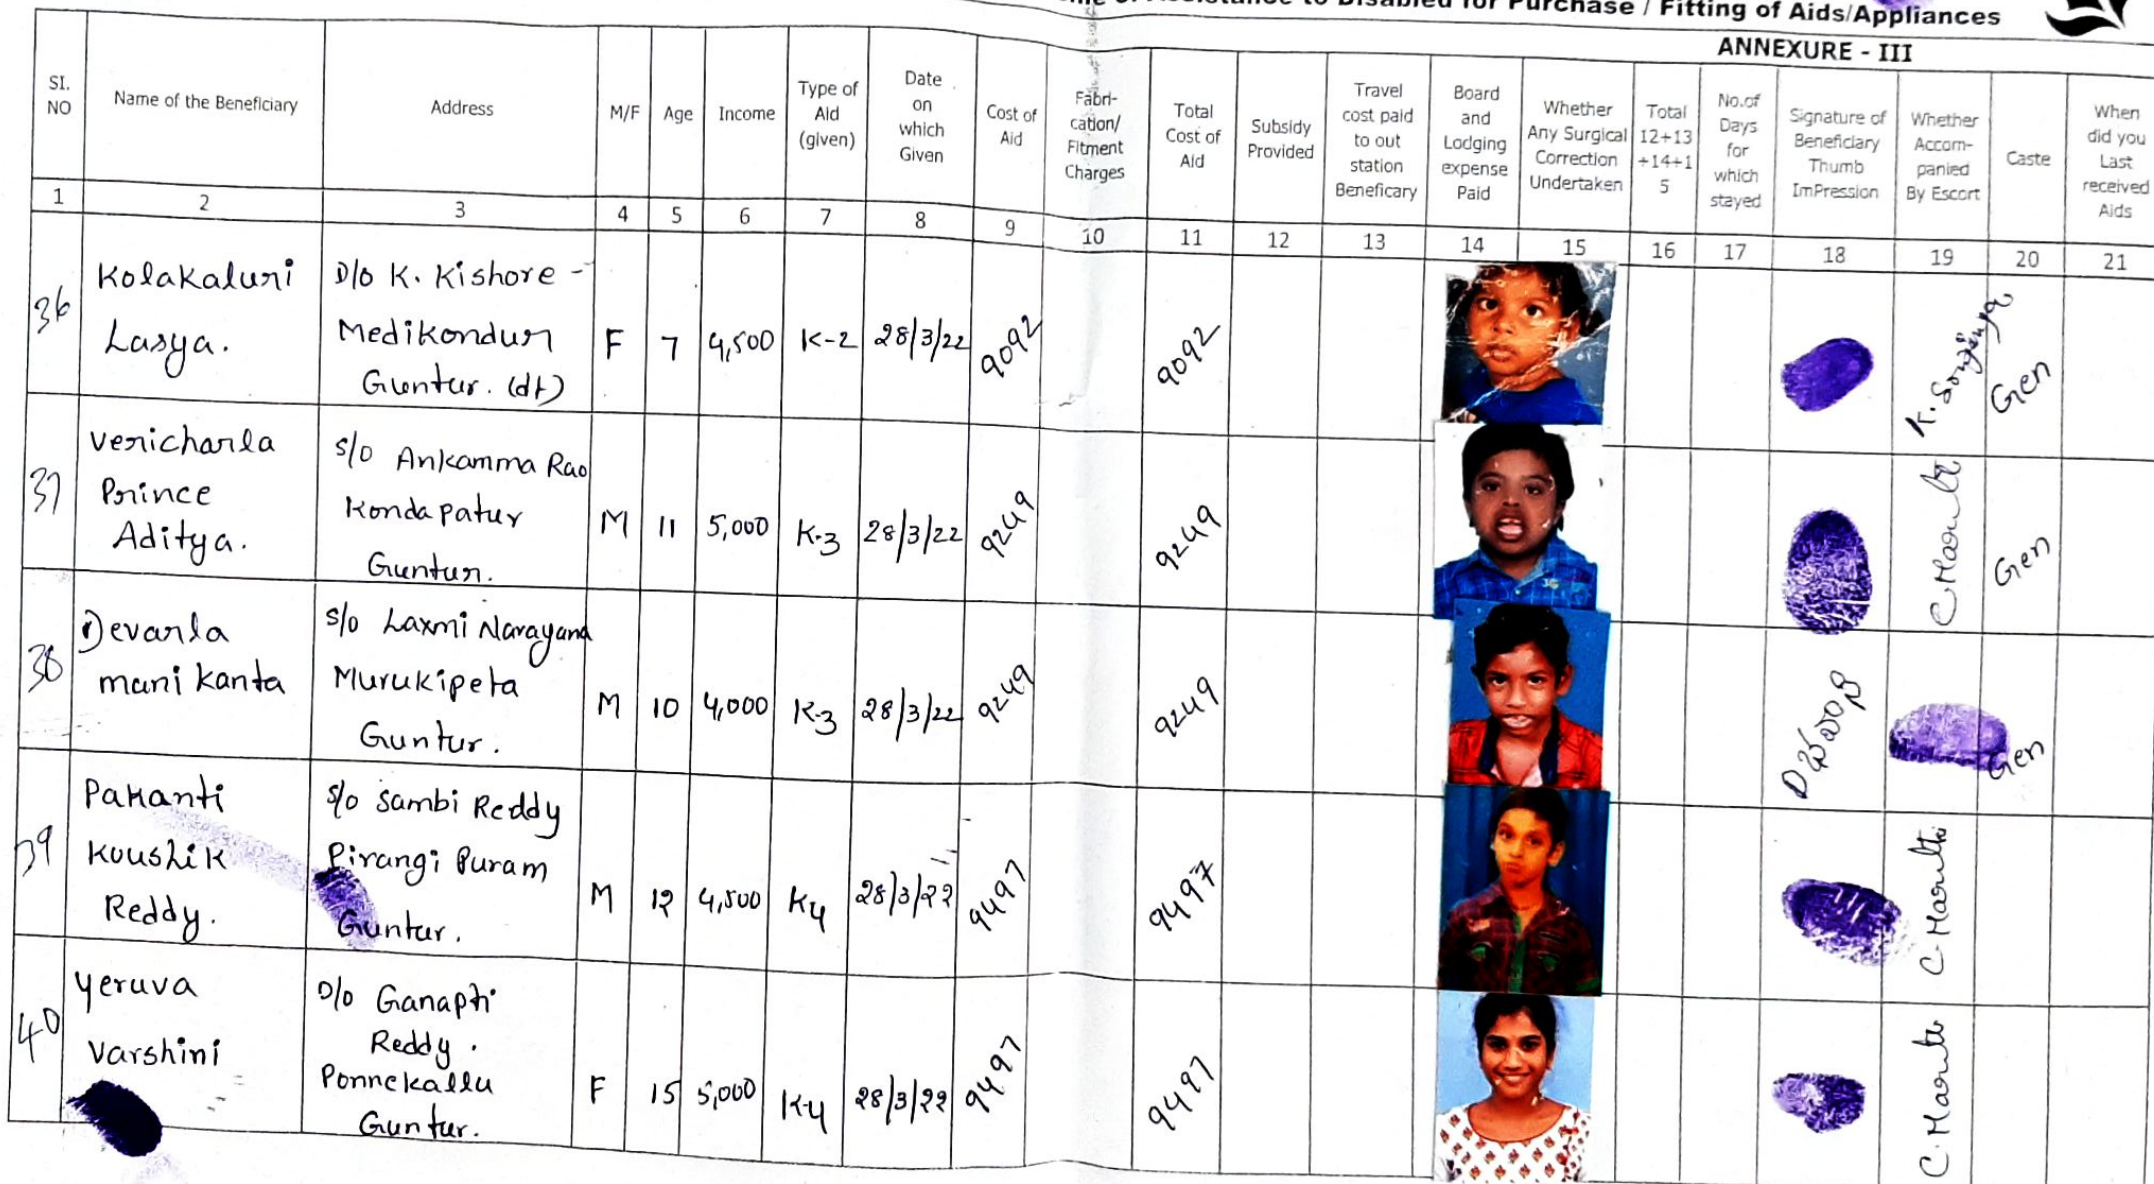 Assistance to Disabled for Purchase / Fitting of Aids/Appliances
ANNEXURE - III
SI. NO
Name of the Beneficiary
Address
M/F
Age
Income
Type of Aid (given)
Date on which Given
Cost of Aid
Fabri-cation/ Fitment Charges
Total Cost of Aid
Subsidy Provided
Travel cost paid to out station Beneficary
Board and Lodging expense Paid
Whether Any Surgical Correction Undertaken
Total 12+13 +14+1 5
No.of Days for which stayed
Signature of Beneficiary Thumb ImPression
Whether Accom-panied By Escort
Caste
When did you Last received Aids
1 2 3 4 5 6 7 8 9 10 11 12 13 14 15 16 17 18 19 20 21
36
Kolakaluri
Lasya.
D/o K. Kishore -
Medikondur
Guntur. (dt)
F 7 4,500 K-2 28/3/22 9092 9092
Gen
37
Vericharla
Prince
Aditya.
S/o Ankamma Rao
Kondapatur
Guntur.
M 11 5,000 K-3 28/3/22 9249 9249
Gen
38
Devarla
mani kanta
S/o Laxmi Narayana
Murukipeta
Guntur.
M 10 4,000 K-3 28/3/22 9249 9249
Gen
39
Pakanti
Koushik
Reddy.
S/o Sambi Reddy
Pirangi Puram
Guntur.
M 12 4,500 K4 28/3/22 9497 9497
40
Yeruva
Varshini
D/o Ganapti
Reddy.
Ponnekallu
Guntur.
F 15 5,000 K-4 28/3/22 9497 9497